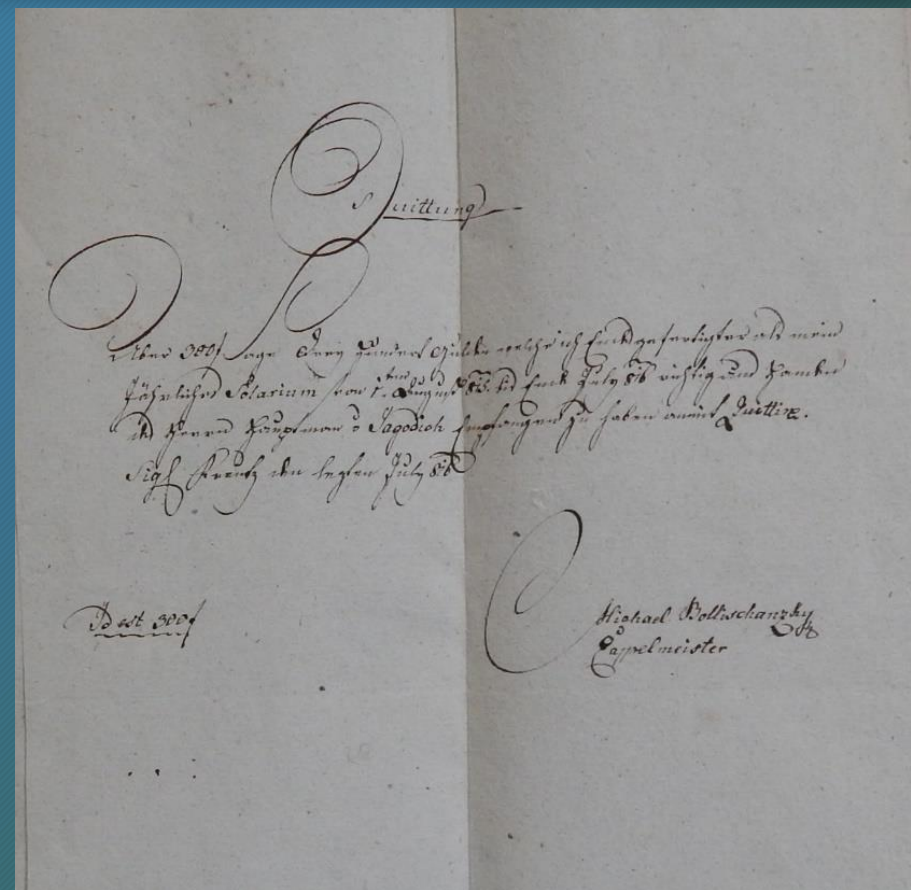 Quittung
Über 300f Sage Drey Hundert Gulden welche ich Endesgefertigter als mein
Jährliches Solarium von 1ten August bis Ende July richtig und
des Herrn Hauptman v Jagodich Empfangen zu haben anmit Quittire.
Sigl den letzten July
Id est 300f
Michael Bollischanzky
Cappelmeister